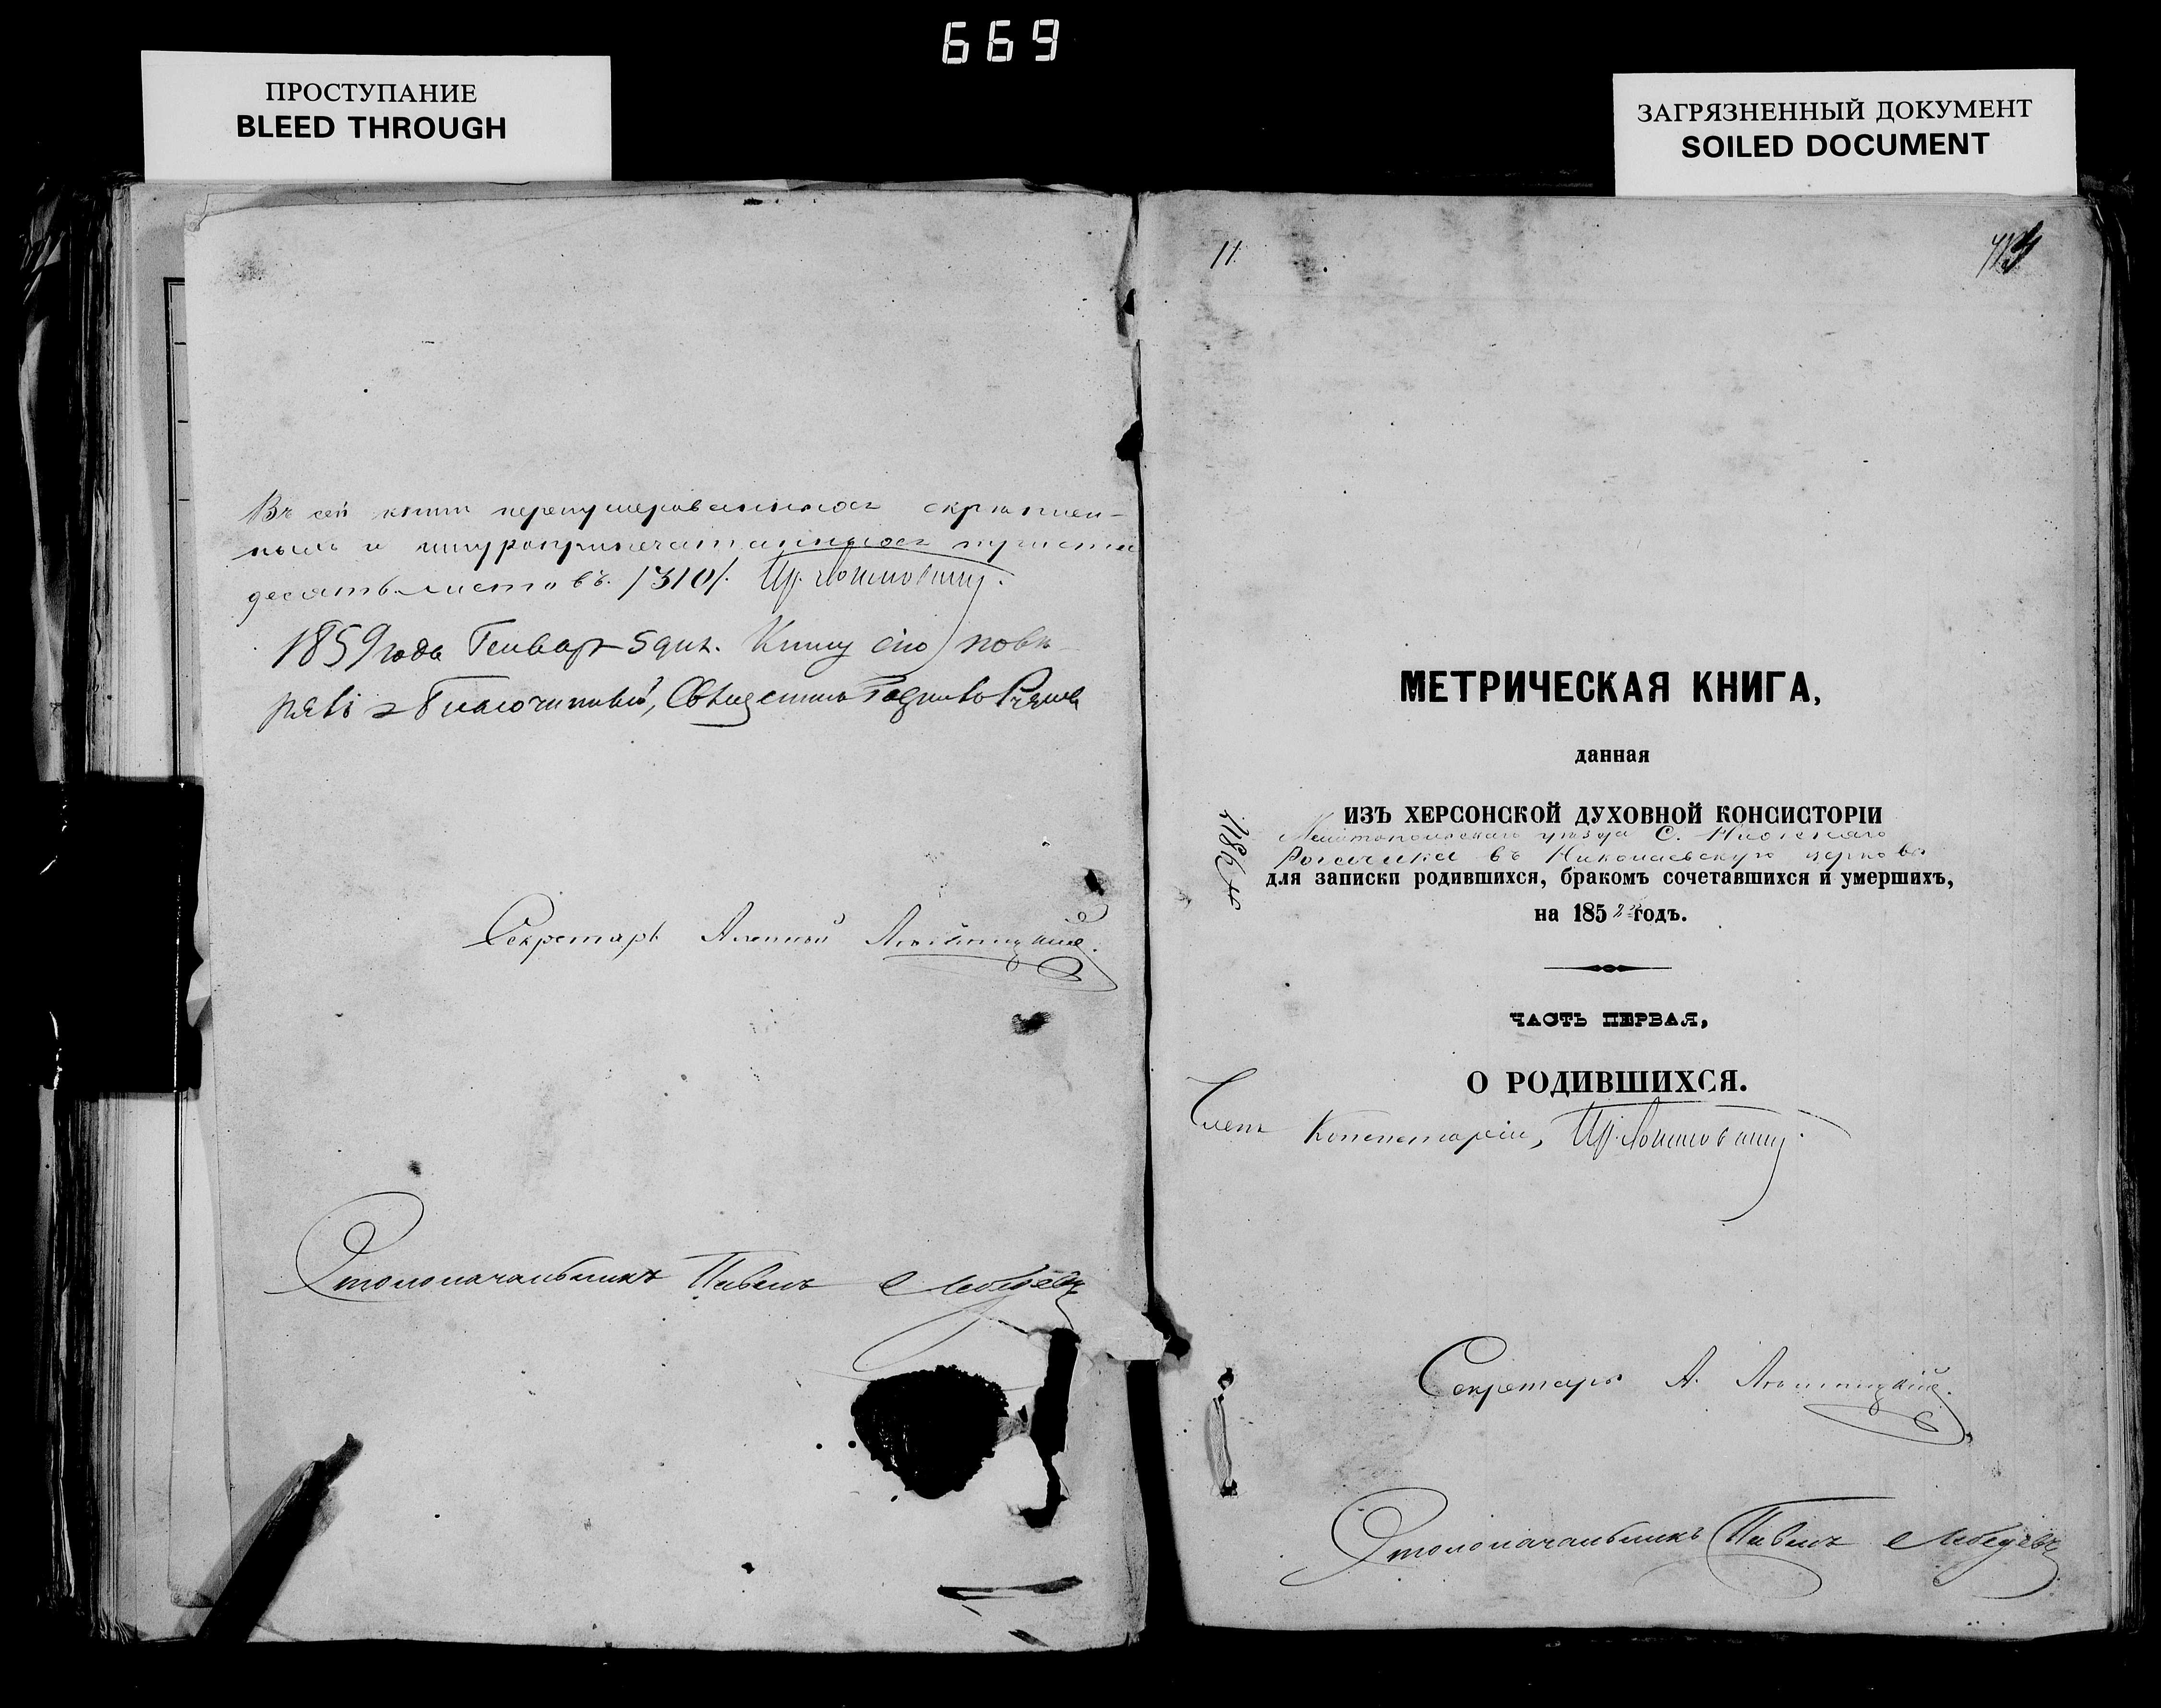 669
ПРОСТУПАНИЕ
BLEED THROUGH
ЗАГРЯЗНЕННЫЙ ДОКУМЕНТ
SOILED DOCUMENT
Въ сей книгѣ перенумерованныхъ скрѣплен-
ныхъ и шнуроприпечатанныхъ триста
десять листовъ. /310/.
1859 года Генваря 5 дня. Книгу сію повѣ-
рялъ Благочинный, Священникъ
Секретарь
Столоначальникъ Павелъ Лебедевъ
11.
МЕТРИЧЕСКАЯ КНИГА,
данная
ИЗЪ ХЕРСОНСКОЙ ДУХОВНОЙ КОНСИСТОРІИ
Мелитопольскаго уѣзда С. Нижняго
Рогачика въ Николаевскую церковь
для записки родившихся, бракомъ сочетавшихся и умершихъ,
на 185 годъ.
ЧАСТЬ ПЕРВАЯ,
О РОДИВШИХСЯ.
Членъ Консисторіи,
Секретарь А.
Столоначальникъ Павелъ Лебедевъ